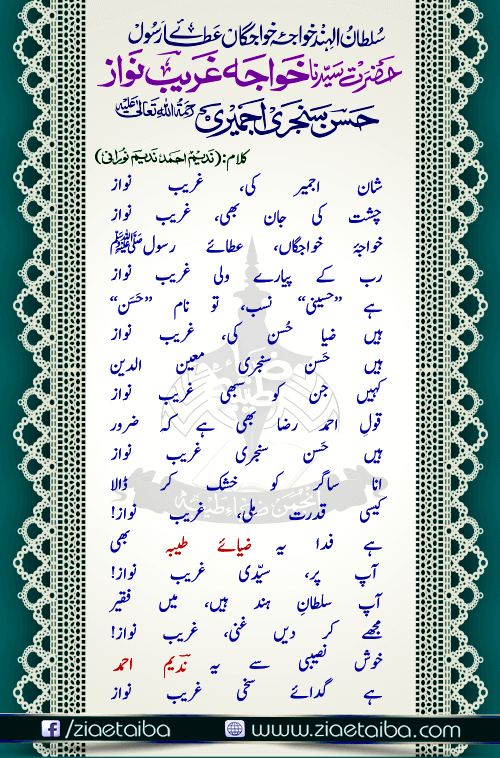 سُلطانُ الہند خواجۂ خواجگاں عطائے رسول
حضرت سیّدنا خواجہ غریب نواز
حسن سنجری اجمیری رحمۃ اللہ تعالیٰ علیہ
کلام: (ندیم احمد ندیم نورانی)
شان اجمیر کی، غریب نواز
چشت کی جان بھی، غریب نواز
خواجۂ خواجگاں، عطائے رسول ﷺ
رب کے پیارے ولی غریب نواز
ہے ”حسینی“ نسب، تو نام ”حَسَن“
ہیں ضیا حُسن کی، غریب نواز
ہیں حَسن سنجری معین الدین
کہیں جن کو سبھی غریب نواز
قولِ احمد رضا بھی ہے کہ ضرور
ہیں حَسن سنجری غریب نواز
انا ساگر کو خشک کر ڈالا
کیسی قدرت ملی، غریب نواز!
ہے فدا یہ ضیائے طیبہ بھی
آپ پر، سیّدی غریب نواز!
آپ سلطانِ ہند ہیں، میں فقیر
مجھے کر دیں غنی، غریب نواز!
خوش نصیبی سے یہ ندیم احمد
ہے گدائے سخی غریب نواز
انجمن ضیاء طیبہ
f /ziaetaiba www.ziaetaiba.com